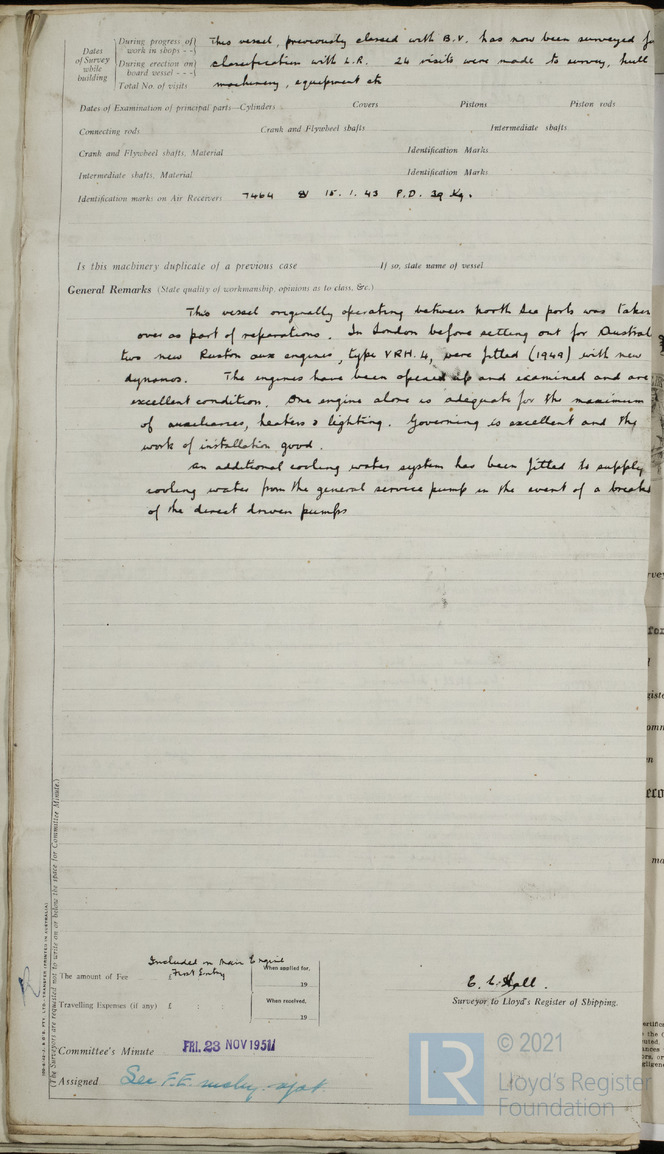 Dates of Survey while building
During progress of work in shops - -
During erection on board vessel - - -
Total No. of visits
This vessel, previously classed with B.V. has now been surveyed fo
classification with L.R. 24 visits were made to survey, hull
machinery, equipment etc
Dates of Examination of principal parts—Cylinders Covers Pistons Piston rods
Connecting rods Crank and Flywheel shafts Intermediate shafts
Crank and Flywheel shafts, Material Identification Marks
Intermediate shafts, Material Identification Marks
Identification marks on Air Receivers 7464 15.1.43 P.D. 39 Kg.
Is this machinery duplicate of a previous case If so, state name of vessel
General Remarks (State quality of workmanship, opinions as to class, &c.)
This vessel originally operating between North Sea ports was taken
over as part of reparations. In London before setting out for Austral
two new Ruston aux engines, type VRH.4, were fitted (1949) with new
dynamos. The engines have been opened up and examined and are
excellent condition. One engine alone is adequate for the maximum
of auxiliaries, heaters & lighting. Governing is excellent and the
work of installation good.
An additional cooling water system has been fitted to supply
cooling water from the general service pump in the event of a breakd
of the direct driven pumps
(The Surveyors are requested not to write on or below the space for Committee Minute.)
The amount of Fee Included in Main Engine
First Entry
When applied for,
19
Travelling Expenses (if any) £ :
When received,
19
E. L. Hall.
Surveyor to Lloyd's Register of Shipping.
Committee's Minute FRI. 23 NOV 1951
Assigned See F.E. mchy. rpt.
LR
© 2021
Lloyd's Register
Foundation